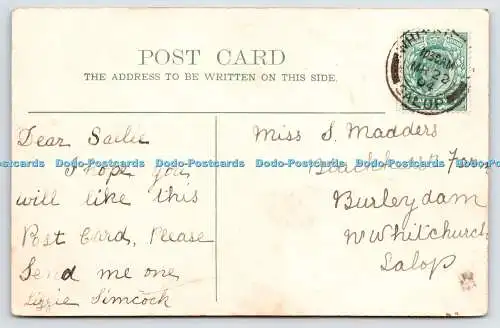 POST CARD
THE ADDRESS TO BE WRITTEN ON THIS SIDE.
MR 22
04
SALOP
Dear Sailie
I hope you
will like this
Post Card, Please
Send me one
Lizzie Simcock
Miss S. Madders
Farm
Burleydam
Nr Whitchurch
Salop
Dodo-Postcards Dodo-Postcards Dodo-Postcards Dodo-Postcards Dodo-Postcards Dodo-Postcards